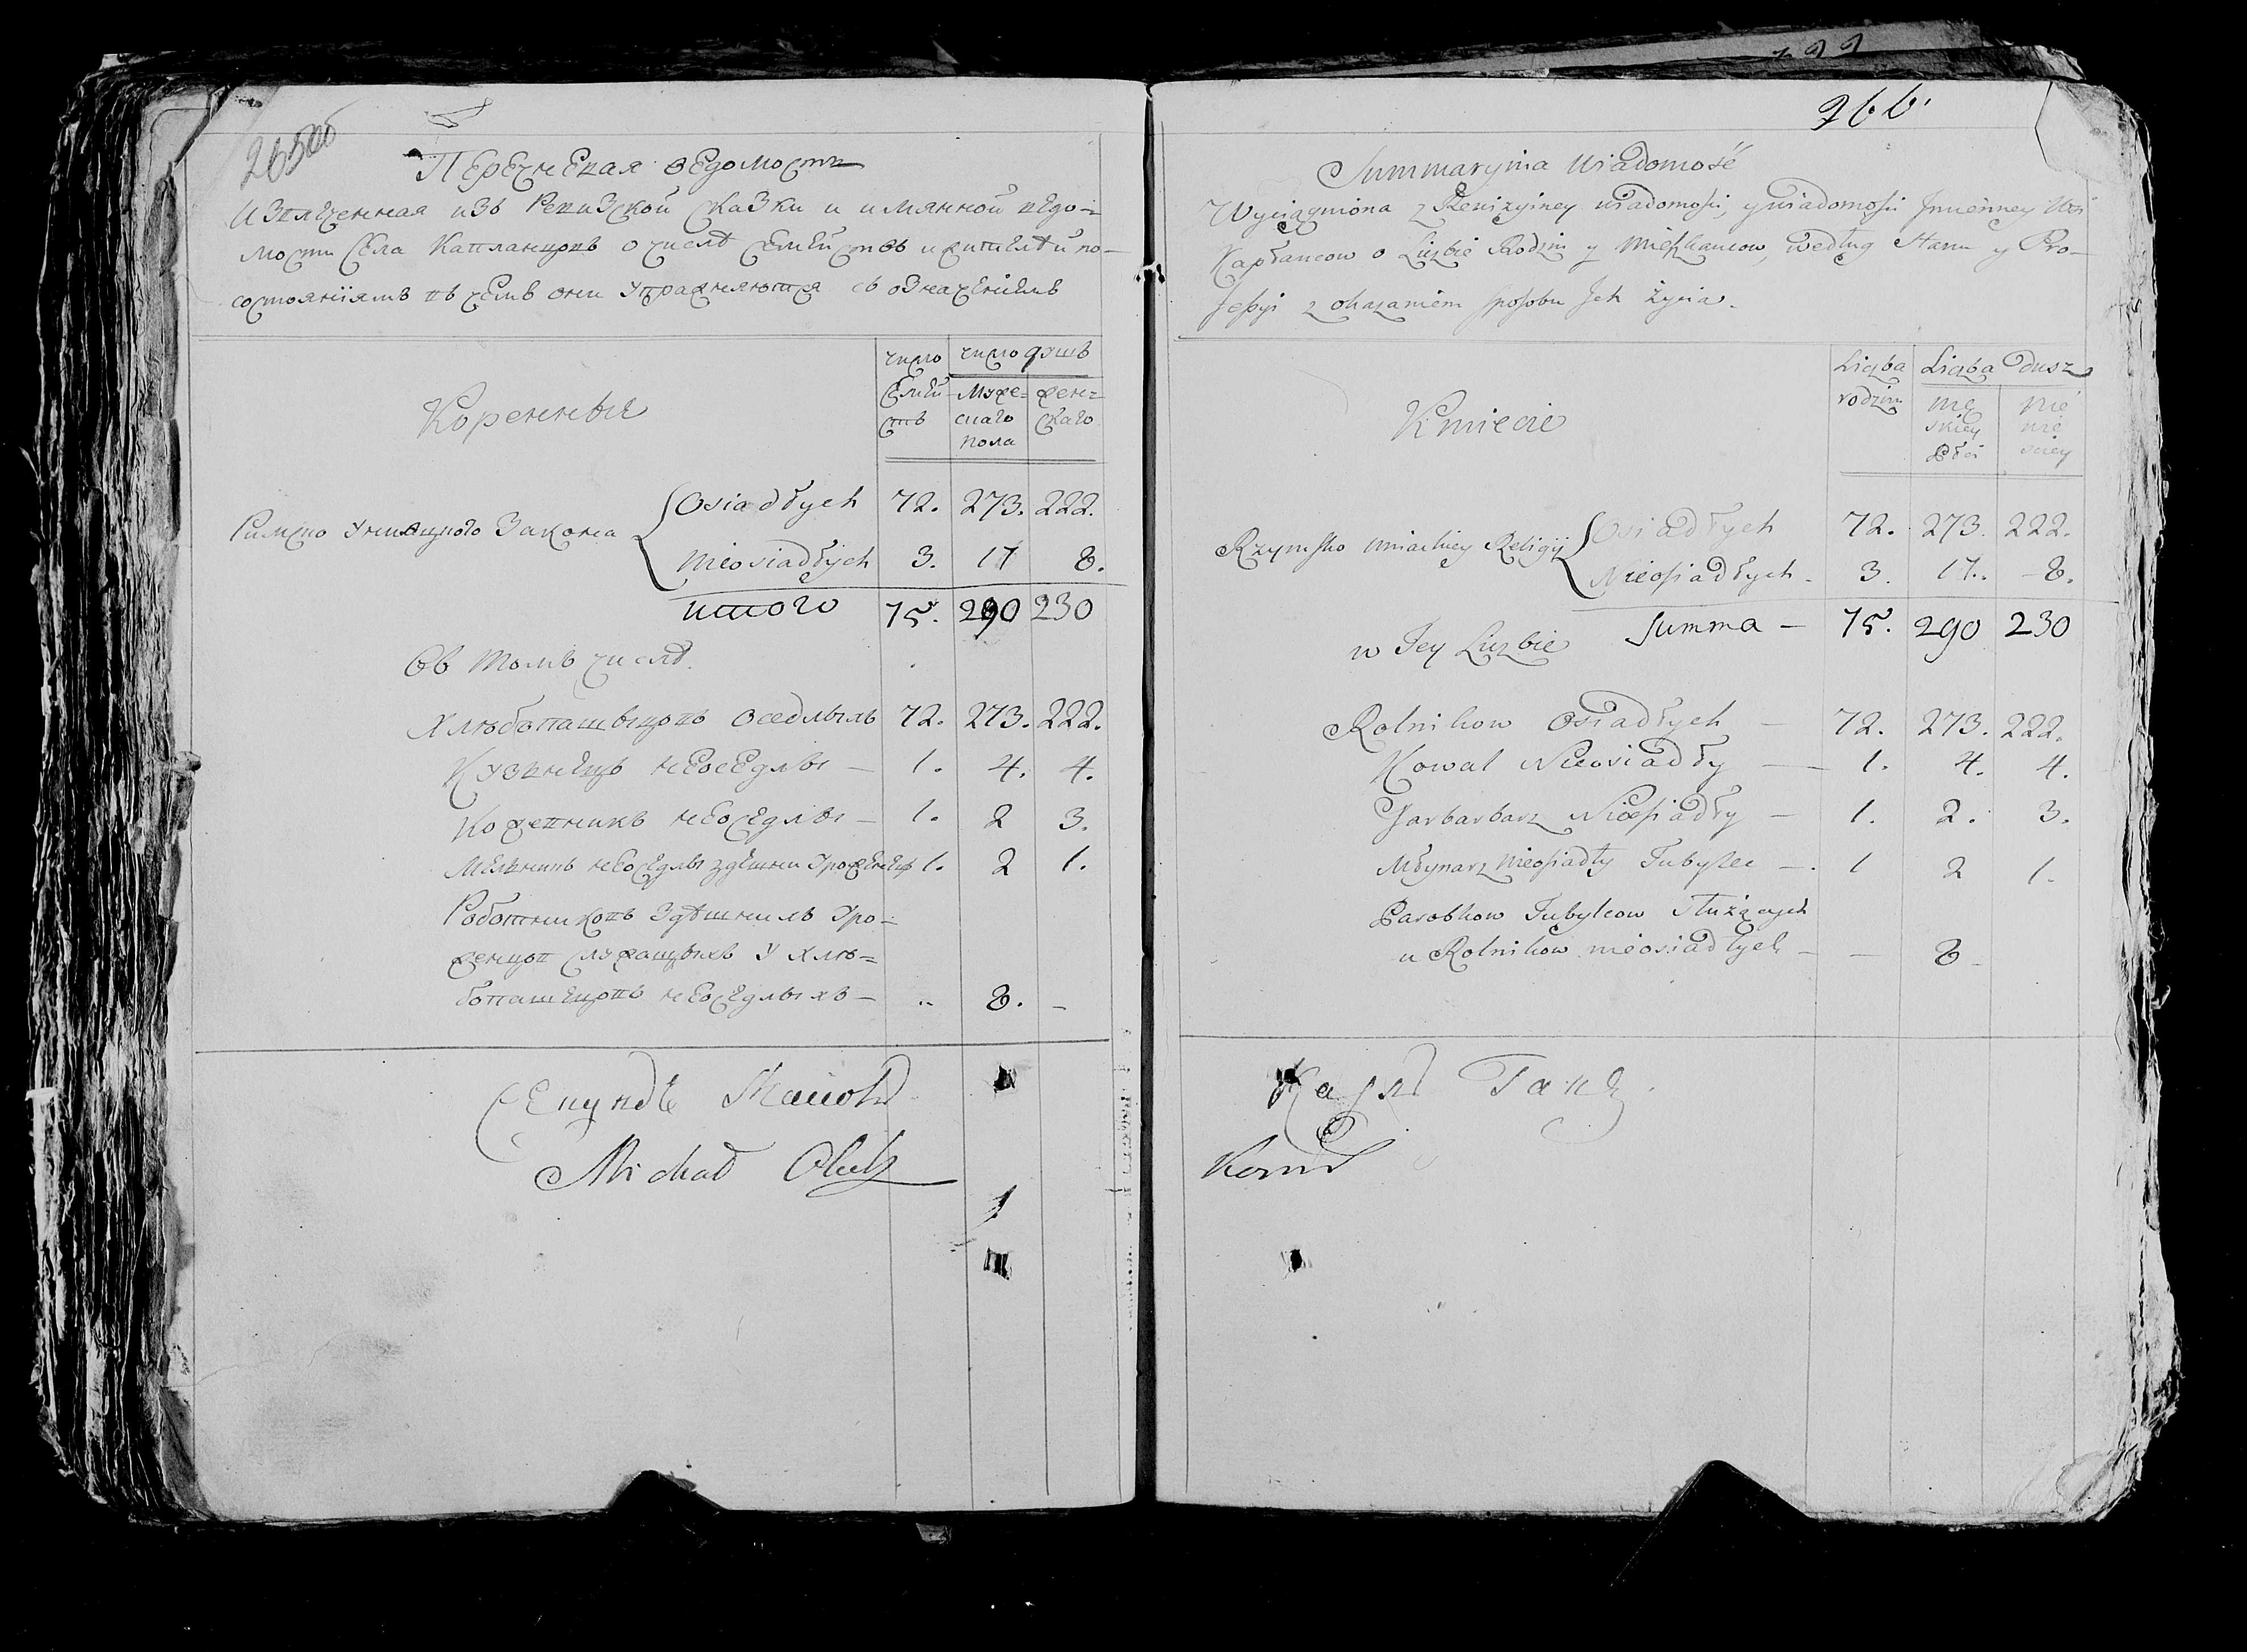 265об
Перечневая ведомость
Извлеченная изъ Ревизской сказки и имянной ведо=
мости села Каплинцовъ о числѣ семействъ и жителѣй по-
состояніямъ въ чемъ они упражняются съ означеніемъ
Коренные
число семействъ
число душъ
мужескаго пола
женскаго
Римско Униацкого Закона
Osiadłych 72. 273. 222.
Nieosiadłych 3. 17 8.
итого 75. 290 230
Въ томъ числѣ.
Хлѣбопашъцовъ оседлыхъ 72. 273. 222.
Кузнецъ неоседлы — 1. 4. 4.
Кожевникъ неоседлы — 1. 2 3.
Мельникъ неоседлы здешни уроженецъ 1. 2 1.
Работниковъ здѣшнихъ уро-
женцов служащыхъ у хлѣ=
бопашецовъ неоседлыхъ — .. 8. —
Michał
266.
Summaryina Wiadomość
Wyciągniona z Rewizyiney wiadomości, y wiadomości Jmienney Wsi
Kapłancow o Liczbie Rodzin y Mieszkancow, według Stanu y Pro-
fessyi z okazaniem sposobu Jch życia.
Kmiecie
Liczba rodzin
Liczba Dusz
męskiey Płci
niewieściey
Rzymsko Uniackiey Religij
Osiadłych 72. 273. 222.
Nieosiadłych - 3. 17.. - 8.
Summa — 75. 290 230
w Tey Liczbie
Rolnikow Osiadłych — 72. 273. 222.
Kowal Nieosiadły — 1. 4. 4.
Garbarbarz Nieosiadły — 1. 2. 3.
Młynarz nieosiadły Tubylec —. 1 2 1.
Parobkow Tubylcow służących
u Rolnikow nieosiadłych — — 8 -